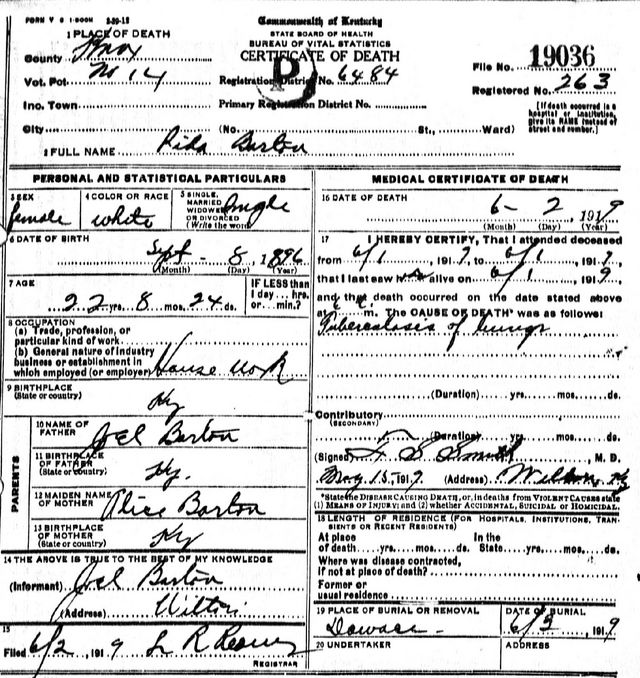 FORM V S 1-500M 2-29-18
Commonwealth of Kentucky
STATE BOARD OF HEALTH
BUREAU OF VITAL STATISTICS
CERTIFICATE OF DEATH
1 PLACE OF DEATH
County Knox
Vot. Pct. M 14
Registration District No. 6484
File No. 19036
Registered No. 263
Inc. Town
Primary Registration District No.
[If death occurred in a hospital or institution, give its NAME instead of street and number.]
City (No. St., Ward)
2 FULL NAME Rida Barton
PERSONAL AND STATISTICAL PARTICULARS
3 SEX female
4 COLOR OR RACE white
5 SINGLE, MARRIED WIDOWED OR DIVORCED (Write the word) Single
6 DATE OF BIRTH Sept - 8, 1896
(Month) (Day) (Year)
7 AGE 22 yrs. 8 mos. 24 ds.
IF LESS than 1 day... hrs. or... min.?
8 OCCUPATION
(a) Trade, profession, or particular kind of work
(b) General nature of industry business or establishment in which employed (or employer) House work
9 BIRTHPLACE (State or country) Ky
PARENTS
10 NAME OF FATHER Joel Barton
11 BIRTHPLACE OF FATHER (State or country) Ky.
12 MAIDEN NAME OF MOTHER Alice Barton
13 BIRTHPLACE OF MOTHER (State or country) Ky
14 THE ABOVE IS TRUE TO THE BEST OF MY KNOWLEDGE
(Informant) Joel Barton
(Address) Wilton
15
Filed 6/2, 1919 L R
REGISTRAR
MEDICAL CERTIFICATE OF DEATH
16 DATE OF DEATH 6-2, 1919
(Month) (Day) (Year)
17 I HEREBY CERTIFY, That I attended deceased
from 6/1, 1919, to 6/1, 1919,
that I last saw alive on 6/1, 1919,
and that death occurred on the date stated above
at m. The CAUSE OF DEATH* was as follows:
Tuberculosis of lungs
(Duration) yrs. mos. ds.
Contributory
(SECONDARY)
(Duration) yrs. mos. ds.
(Signed) Smith, M. D.
May 15, 1919 (Address) Wilton, Ky
*State the DISEASE CAUSING DEATH, or, in deaths from VIOLENT CAUSES state
(1) MEANS OF INJURY; and (2) whether ACCIDENTAL, SUICIDAL or HOMICIDAL.
18 LENGTH OF RESIDENCE (FOR HOSPITALS, INSTITUTIONS, TRANSIENTS OR RECENT RESIDENTS)
At place of death yrs. mos. ds.
In the State yrs. mos. ds.
Where was disease contracted, if not at place of death?
Former or usual residence
19 PLACE OF BURIAL OR REMOVAL
DATE OF BURIAL 6/3, 1919
20 UNDERTAKER
ADDRESS